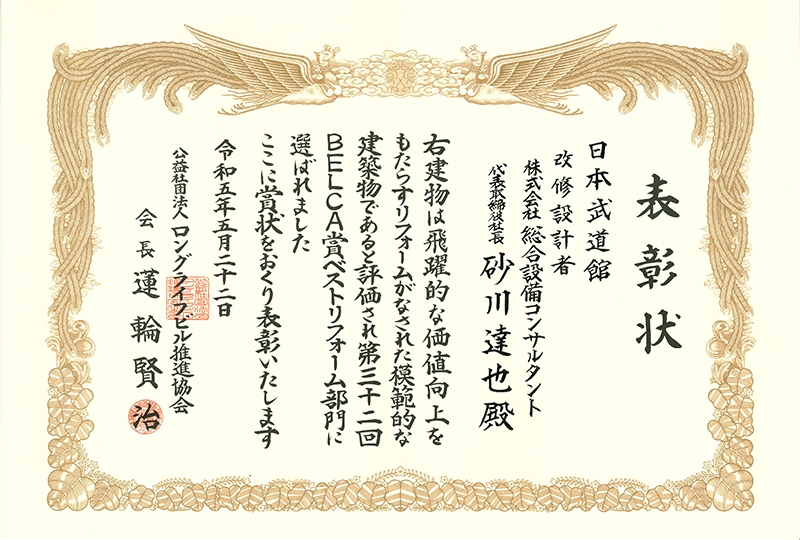 表彰状
日本武道館
改修設計者
株式会社 総合設備コンサルタント
代表取締役社長 砂川達也殿
右建物は飛躍的な価値向上を
もたらすリフォームがなされた模範的な
建築物であると評価され第三十二回
BELCA賞ベストリフォーム部門に
選ばれました
ここに賞状をおくり表彰いたします
令和五年五月二十二日
公益社団法人 ロングライフビル推進協会
会長 蓮輪賢治